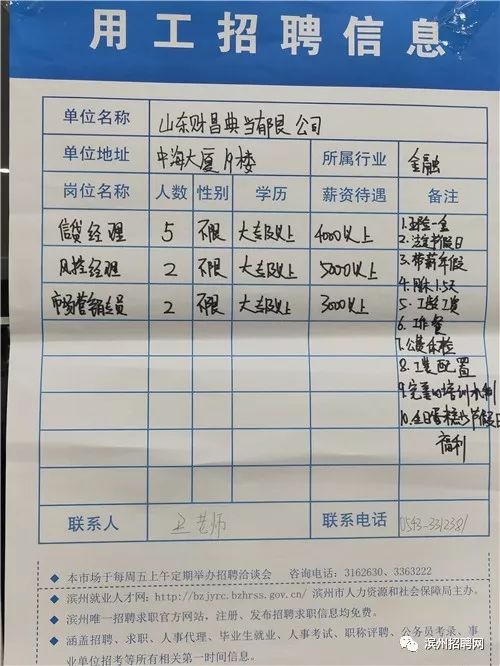 用工招聘信息
单位名称 山东财昌典当有限公司
单位地址 中海大厦 19楼 所属行业 金融
岗位名称 人数 性别 学历 薪资待遇 备注
信贷经理 5 不限 大专及以上 4000以上
风控经理 2 不限 大专及以上 5000以上
市场营销专员 2 不限 大专及以上 3000以上
1.五险一金
2.法定节假日
3.带薪年假
4.周休1.5天
5.工龄工资
6.工作餐
7.公费体检
8.工装配置
9.完善的培训机制
福利
联系人 联系电话 0543-3312381
◆ 本市场于每周五上午定期举办招聘洽谈会 咨询电话:3162630、3363222
◆ 滨州就业人才网:http://bzjyrc.bzhrss.gov.cn/ 滨州市人力资源和社会保障局主办。
◆ 滨州唯一招聘求职官方网站,注册、发布招聘求职信息均免费。
◆ 涵盖招聘、求职、人事代理、毕业生就业、人事考试、职称评聘、公务员考录、事
业单位招考等所有相关第一时间信息。
滨州招聘网